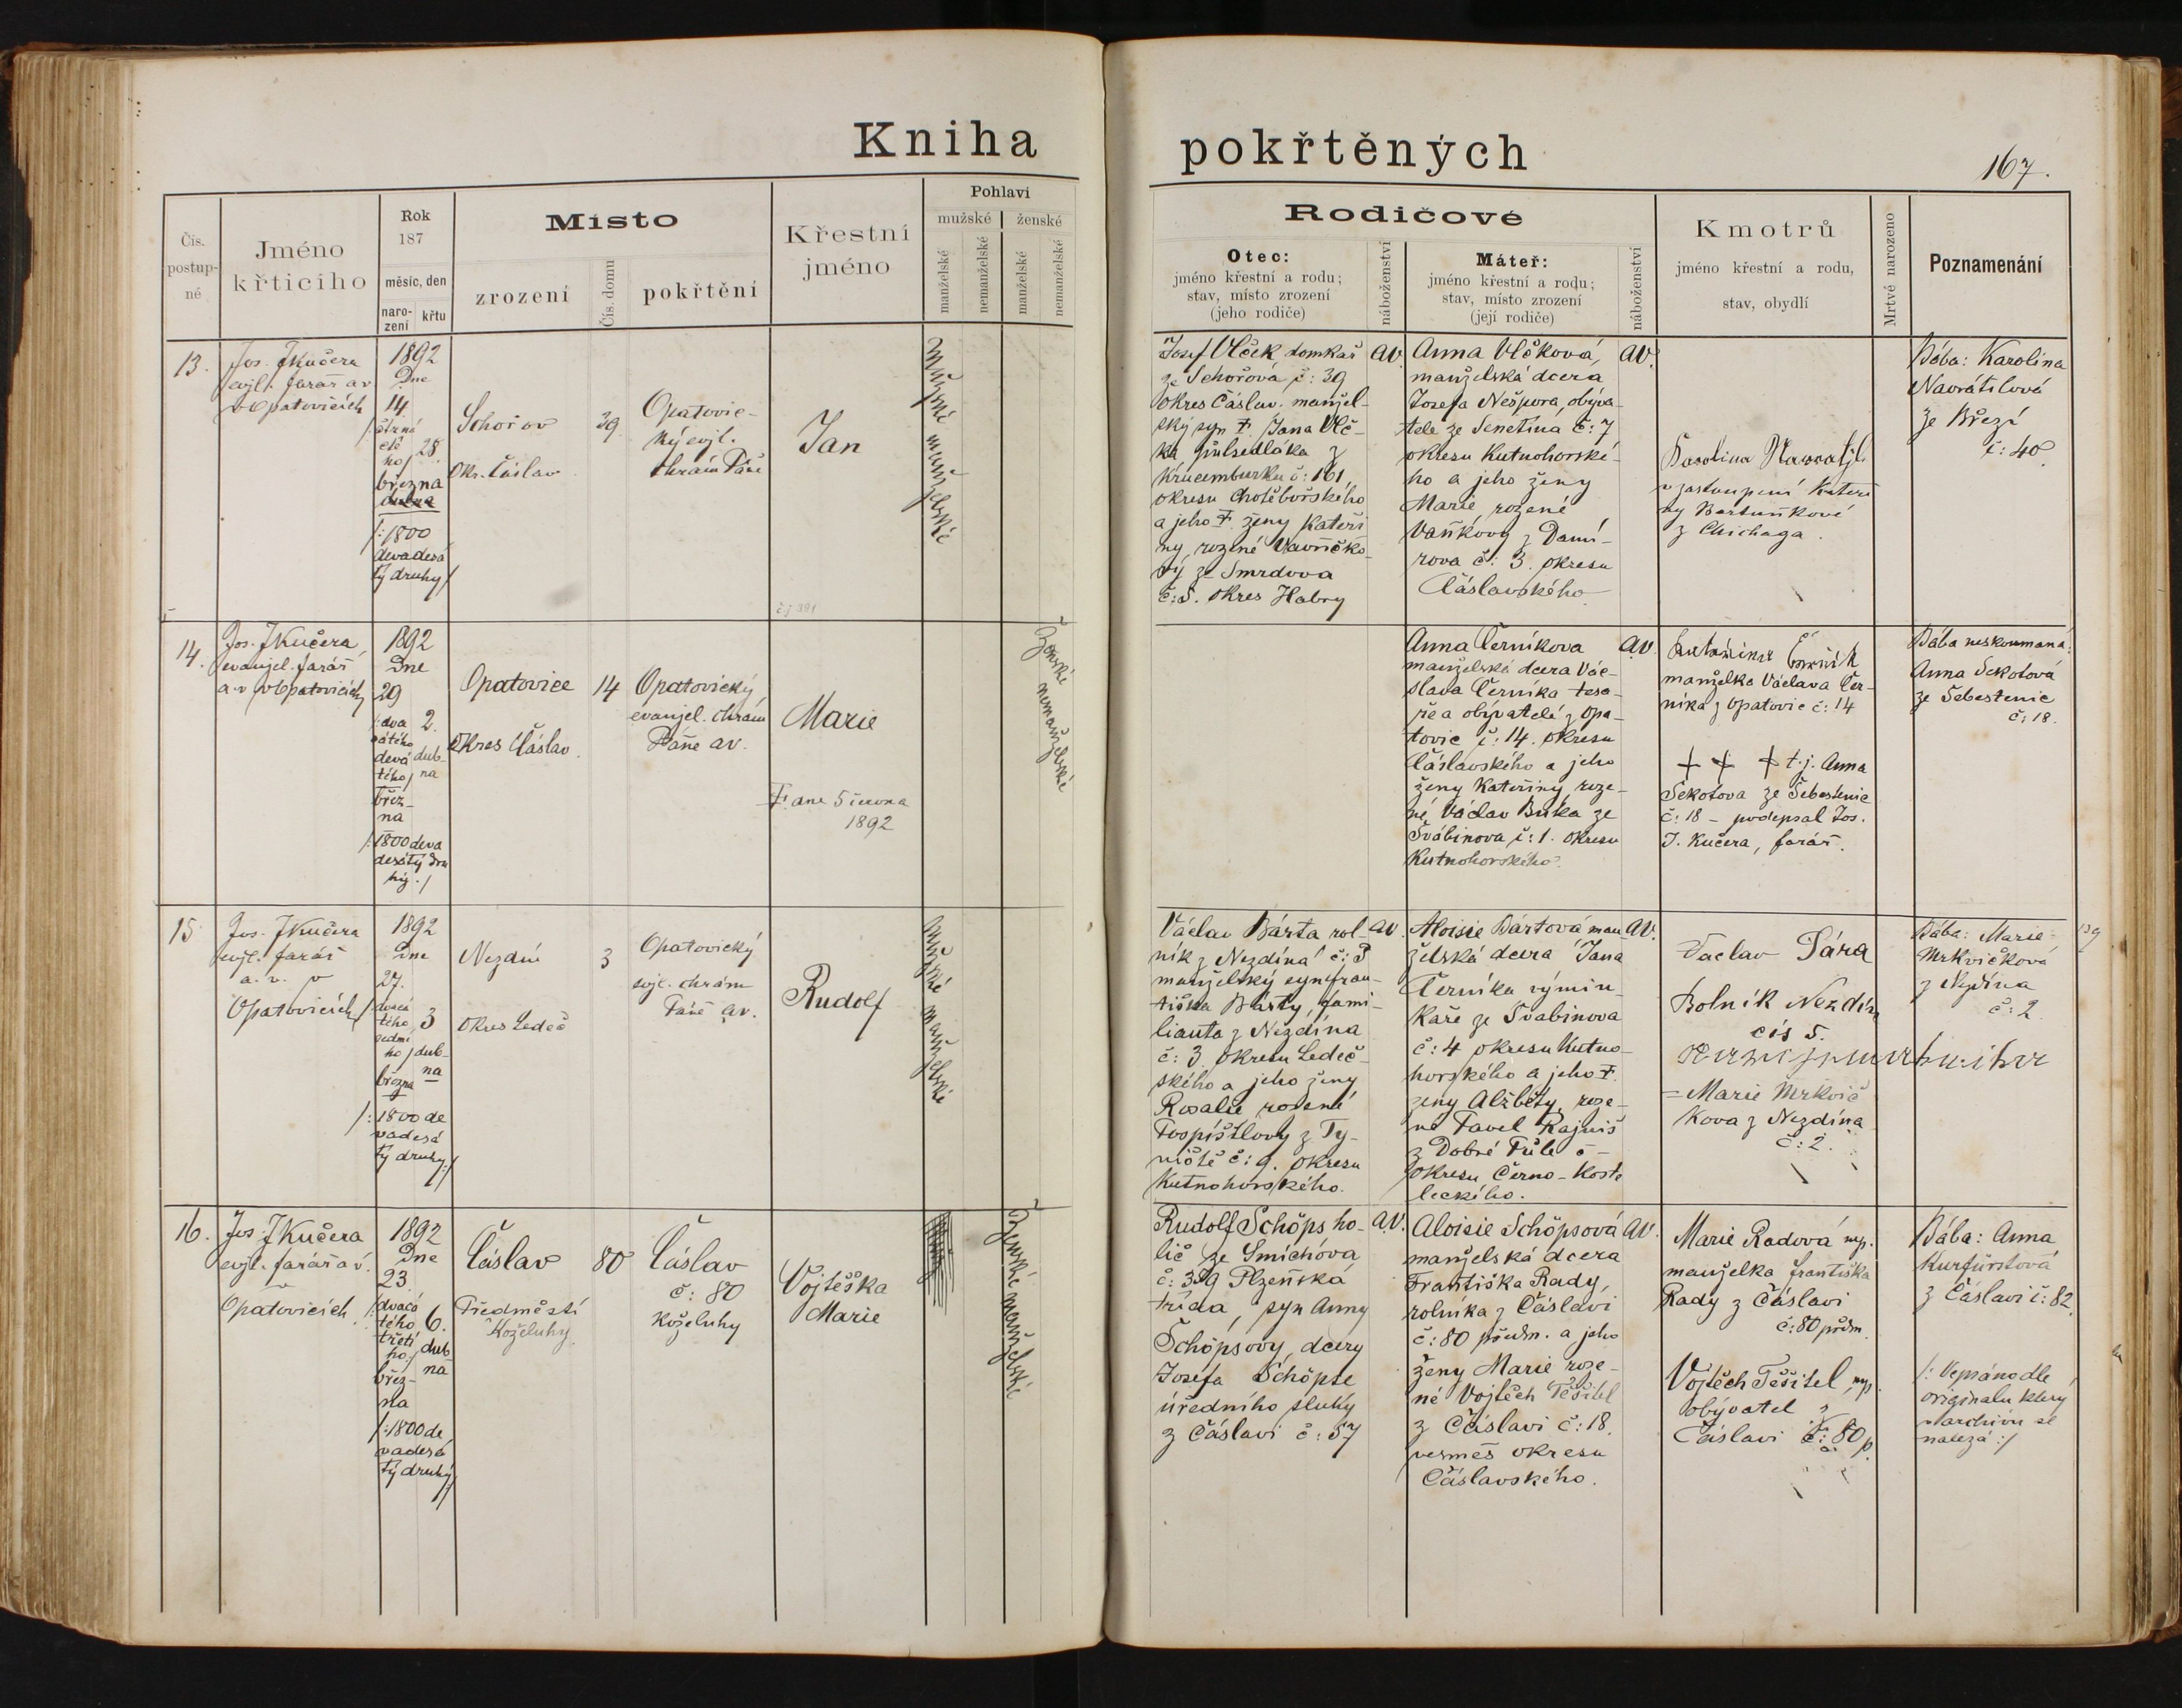 Kniha
pokřtěných
167.
Čís.
postup-
né
Jméno
křticího
Rok
187
měsíc, den
naro-
zení
křtu
Místo
zrození
Čís. domu
pokřtění
Křestní
jméno
Pohlaví
mužské
ženské
manželské
nemanželské
manželské
nemanželské
Rodičové
Otec:
jméno křestní a rodu;
stav, místo zrození
(jeho rodiče)
náboženství
Máteř:
jméno křestní a rodu;
stav, místo zrození
(její rodiče)
náboženství
Kmotrů
jméno křestní a rodu,
stav, obydlí
Mrtvé narozeno
Poznamenání
13.
Jos. JKučera
evjl. farář av
v Opatovicích
1892
Dne
14
/čtrná
cté
ho/
března
dubna
28.
/:1800
devadesá
tý druhý/
Schořov
Okr. Čáslav
39
Opatovic-
ký evjl.
chrám Páně
Jan
Mužské manželské
Josef Vlček, domkař
ze Schořova, č: 39
okres Čáslav. manžel-
ský syn Ŧ Jana Vlč-
ka půlsedláka z
Krucemburku č: 161,
okresu Chotěbořského
a jeho Ŧ. ženy Kateři
ny, rozené Vavřičko-
vý ze Smrdova
č: 5. okres Habry
AV.
Anna Vlčková,
manželská dcera
Josefa Nešpora, obýva-
tele ze Senetína č: 7
okresu Kutnohorské-
ho a jeho ženy
Marie, rozené
Vaňkovy z Damí-
rova č: 3. okresu
Čáslavského
AV.
Karolina Nawratjl.
v zastoupení Kateři
ny Bartuňkové
z Chichaga.
Bába: Karolina
Navrátilová
ze Březí
č: 40.
č.j. 391
14.
Jos. JKučera,
evanjel. farář
a.v v Opatovicích
1892
Dne
29
/:dva
cátého
devá
tého/
břez-
na
2.
dub-
na
/:1800 deva
desátý dru
hý./
Opatovice
Okres Čáslav.
14
Opatovický
evanjel. chrám
Páně av.
Marie
Ŧ. dne 5 června
1892
Ženské nemanželské
Anna Černíkova
manželská dcera Vác-
slava Černíka tesa-
ře a obývatele z Opa-
tovic č: 14. okresu
Čáslavského a jeho
ženy Kateřiny, roze-
né Václav Buka ze
Švábinova č: 1. okresu
Kutnohorského.
AV.
manželka Václava Čer-
níka z Opatovic č: 14
+ + + t.j. Anna
Sekotova ze Šebestenic
č: 18 - podepsal Jos.
J. Kučera, farář.
Bába neskoumaná:
Anna Sekotová
ze Šebestenic
č: 18.
15
Jos. JKučera
evjl. farář
a. v. v
Opatovicích
1892
Dne
27.
/:dvacá
tého
sedmé
ho/
března
3
dub-
na
/:1800 de
vadesá
tý druhý:/
Nezdín
Okres Ledeč
3
Opatovický
evjl. chrám
Páně av.
Rudolf
Mužské manželské
Václav Bárta rol-
ník z Nezdína č: 3
manželský syn Fran-
tiška Bárty, fami-
lianta z Nezdína
č: 3 okresu Ledeč-
ského a jeho ženy
Rosalie rozené
Pospíšilovy z Tý-
niště č: 9. okresu
Kutnohorského.
AV.
Aloisie Bártová man
želská dcera Jana
Černíka výmin-
káře ze Švabinova
č: 4 okresu Kutno-
horského a jeho Ŧ.
ženy Alžběty, roze-
né Pavel Rajniš
z Dobré Půle č -
okresu Černo-Koste
leckého.
AV.
Vaclav Pára
Rolník Nezdín
čís 5.
= Marie Mrkvič
kova z Nezdína
č: 2.
Bába: Marie
Mrkvičková
z Nezdína
č: 2
16.
Jos. JKučera
evjl. farář av.
v
Opatovicích.
1892
Dne
23.
/:dvacá
tého
třetí
ho:/
břez-
na
6.
dub
na
/:1800 de
vadesá
tý druhý:/
Čáslav
Předměstí
Koželuhy.
80
Čáslav
č: 80
Koželuhy
Vojtěška
Marie
Ženské manželské
Rudolf Schöps ho-
lič ze Smíchova
č: 339 Plzeňská
třída, syn Anny
Schöpsovy, dcery
Josefa Schöpse
úředního sluhy
z Čáslavi č: 57
AV.
Aloisie Schöpsová
manželská dcera
Františka Rady,
rolníka z Čáslavi
č: 80 předm. a jeho
ženy Marie roze-
né Vojtěch Těšitel
z Čáslavi č: 18.
vesměs okresu
Čáslavského.
AV.
Marie Radová mp.
manželka Františka
Rady z Čáslavi
č: 80 předm.
Vojtěch Těšitel, mp.
obývatel z
Čáslavi č: 80 p.
Bába: Anna
Kurfürstová
z Čáslavi č: 82.
/: Vepsáno dle
originalu který
v archivu se
nalezá :/